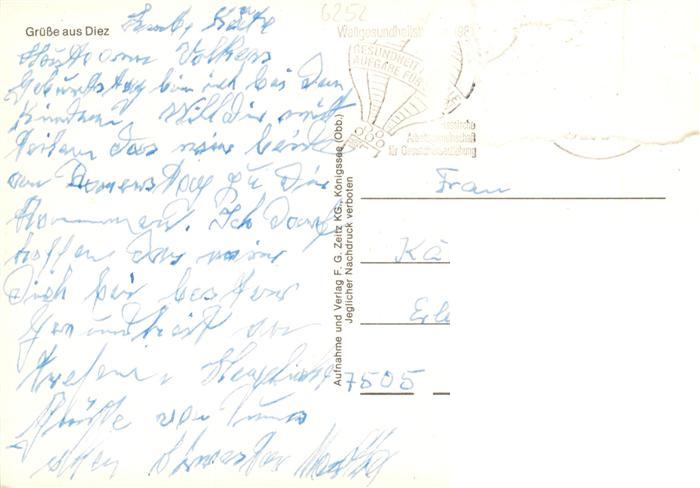 6252
Grüße aus Diez
Liebe Käte
Heute an Volkers
Geburtstag bin ich bei den
Kindern, Will Dir mit
teilen das wir beide
am Donnerstag zu Dir
kommen. Ich darf
hoffen das wir
Dich bei bester
Gesundheit an
treffen. Herzliche
Grüße von uns
allen
Weltgesundheitst 198
GESUNDHEIT
AUFGABE FÜR
Hessische
Arbeitsgemeinschaft
für Gesundheitserziehung
Aufnahme und Verlag F. G. Zeitz KG., Königssee (Obb.)
Jeglicher Nachdruck verboten
Frau
Kä
Erle
7505